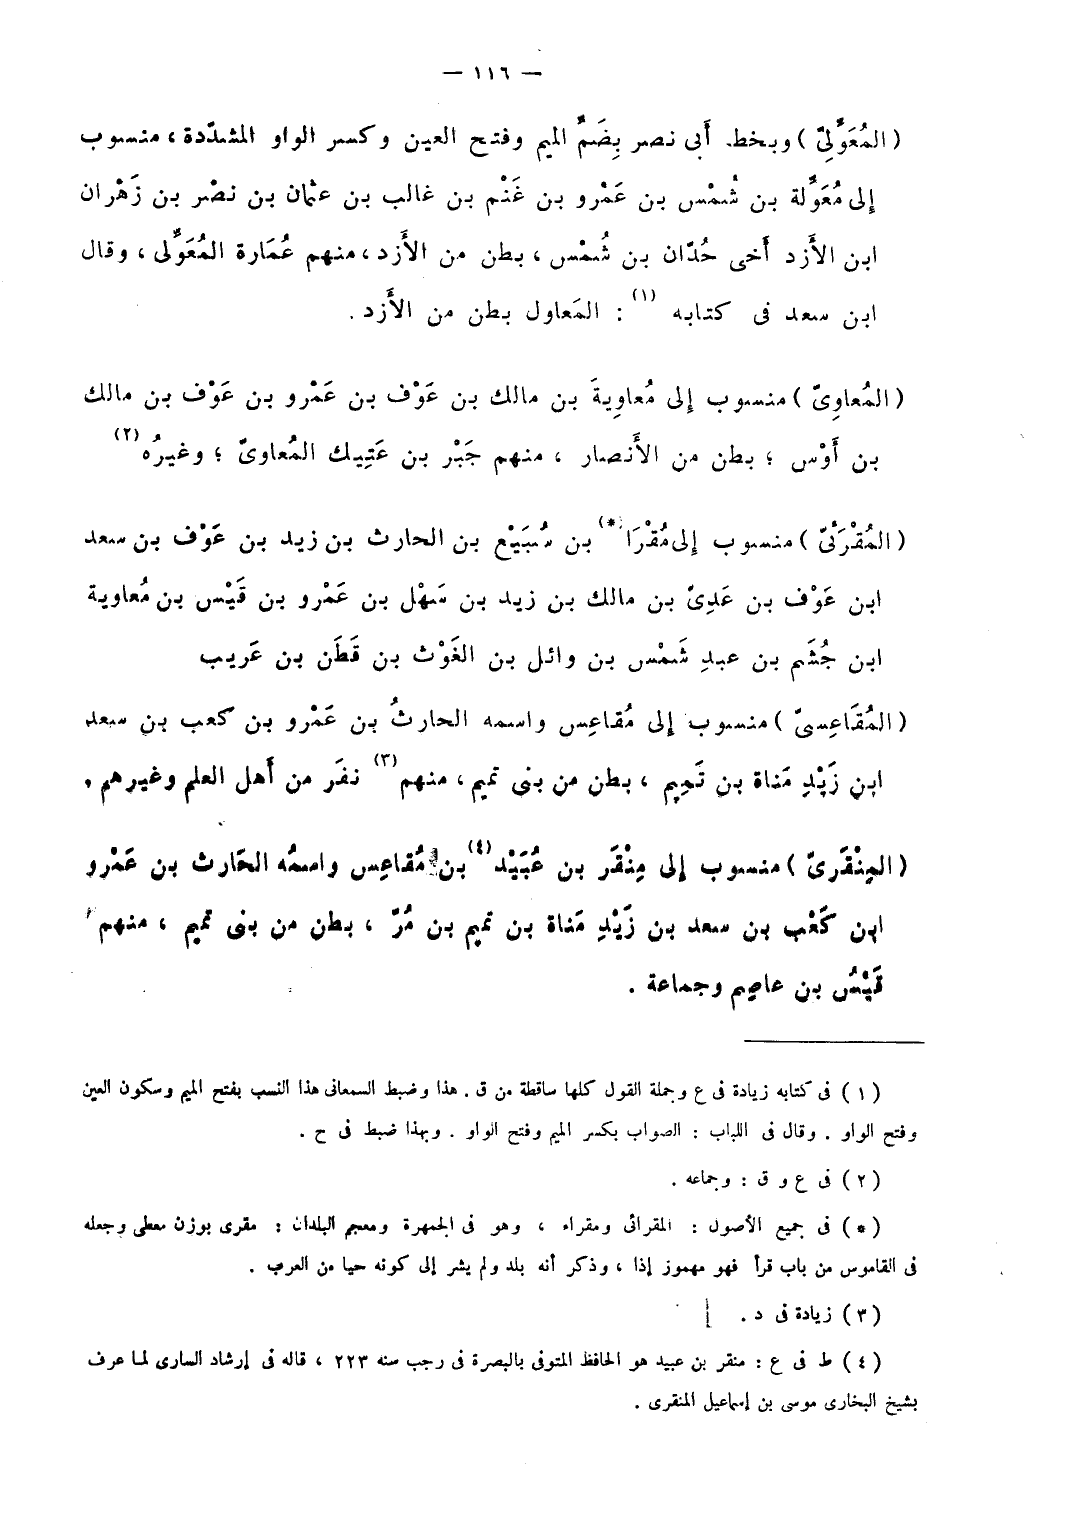 — ١١٦ —
( المُعَوِّلىّ ) وبخط. أَبى نصر بِضَمِّ الميم وفتح العين وكسر الواو المشدّدة ، منسوب
إلى مُعَوِّلة بن شُمْس بن عَمْرو بن غَنْم بن غالب بن عثمان بن نصْر بن زَهْران
ابن الأَزد أَخى حُدّان بن شُمْس ، بطن من الأَزد ، منهم عُمَارة المُعَوِّلى ، وقال
ابن سعد فى كتابه (١) : المَعاول بطن من الأَزد .
( المُعاوِىّ ) منسوب إلى مُعاوِيةَ بن مالك بن عَوْف بن عَمْرو بن عَوْف بن مالك
بن أَوْس ؛ بطن من الأَنصار ، منهم جَبْر بن عَتِيك المُعاوىّ ؛ وغيرُه (٢)
( المُقْرَئىّ ) منسوب إلى مُقْرَا (*) بن سُبَيْع بن الحارث بن زيد بن عَوْف بن سعد
ابن عَوْف بن عَدِىّ بن مالك بن زيد بن سَهْل بن عَمْرو بن قَيْس بن مُعاوية
ابن جُشَم بن عبدِ شَمْس بن وائل بن الغَوْث بن قَطَن بن عَريب
( المُقَاعِسىّ ) منسوب إلى مُقاعِس واسمه الحارثُ بن عَمْرو بن كعب بن سعد
ابن زَيْدِ مَناة بن تَمِيم ، بطن من بنى تميم ، منهم (٣) نفَر من أَهل العلم وغيرهم .
( المِنْقَرىّ ) منسوب إلى مِنْقَر بن عُبَيْد (٤) بن مُقاعِس واسمُه الحَارث بن عَمْرو
ابن كَعْب بن سعد بن زَيْدِ مَناة بن تميم بن مُرّ ، بطن من بنى تميم ، منهم
قَيْسُ بن عاصِم وجماعة .
( ١ ) فى كتابه زيادة فى ع وجملة القول كلها ساقطة من ق . هذا وضبط السمعانى هذا النسب بفتح الميم وسكون العين
وفتح الواو . وقال فى اللباب : الصواب بكسر الميم وفتح الواو . وبهذا ضبط فى ح .
( ٢ ) فى ع و ق : وجماعه .
( * ) فى جميع الأصول : المقرائى ومقراء ، وهو فى الجمهرة ومعجم البلدان : مقرى بوزن معطى وجعله
فى القاموس من باب قرأ فهو مهموز إذا ، وذكر أنه بلد ولم يشر إلى كونه حيا من العرب .
( ٣ ) زيادة فى د .
( ٤ ) ط فى ع : منقر بن عبيد هو الحافظ المتوفى بالبصرة فى رجب سنه ٢٢٣ ، قاله فى إرشاد السارى لما عرف
بشيخ البخارى موسى بن إسماعيل المنقرى .